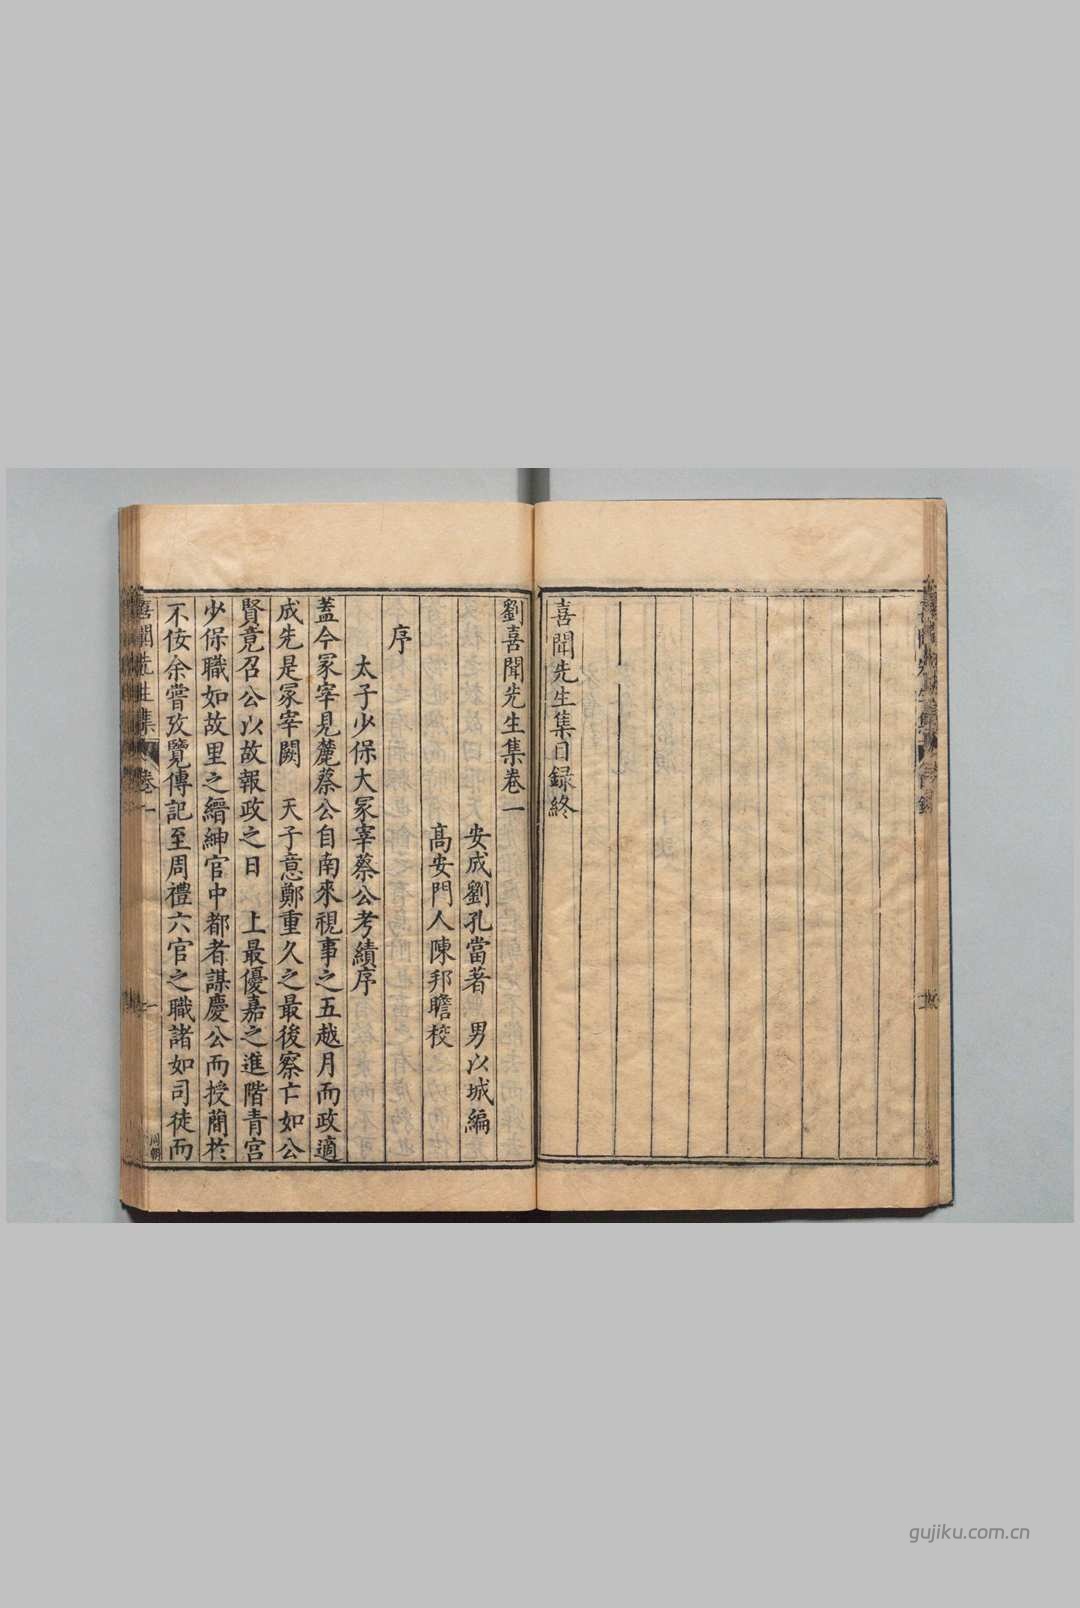 喜聞先生集目録終
劉喜聞先生集卷一
安成劉孔當著 男以城編
髙安門人陳邦瞻校
序
太子少保大冡宰蔡公考績序
蓋今冡宰見麓蔡公自南來視事之五越月而政適
成先是冡宰闕 天子意鄭重久之最後察亡如公
賢竟召公以故報政之日 上最優嘉之進階青宫
少保職如故里之縉紳官中都者謀慶公而授簡於
不佞余嘗攷覽傳記至周禮六官之職諸如司徒而
喜聞先生集 卷一 一
gujiku.com.cn